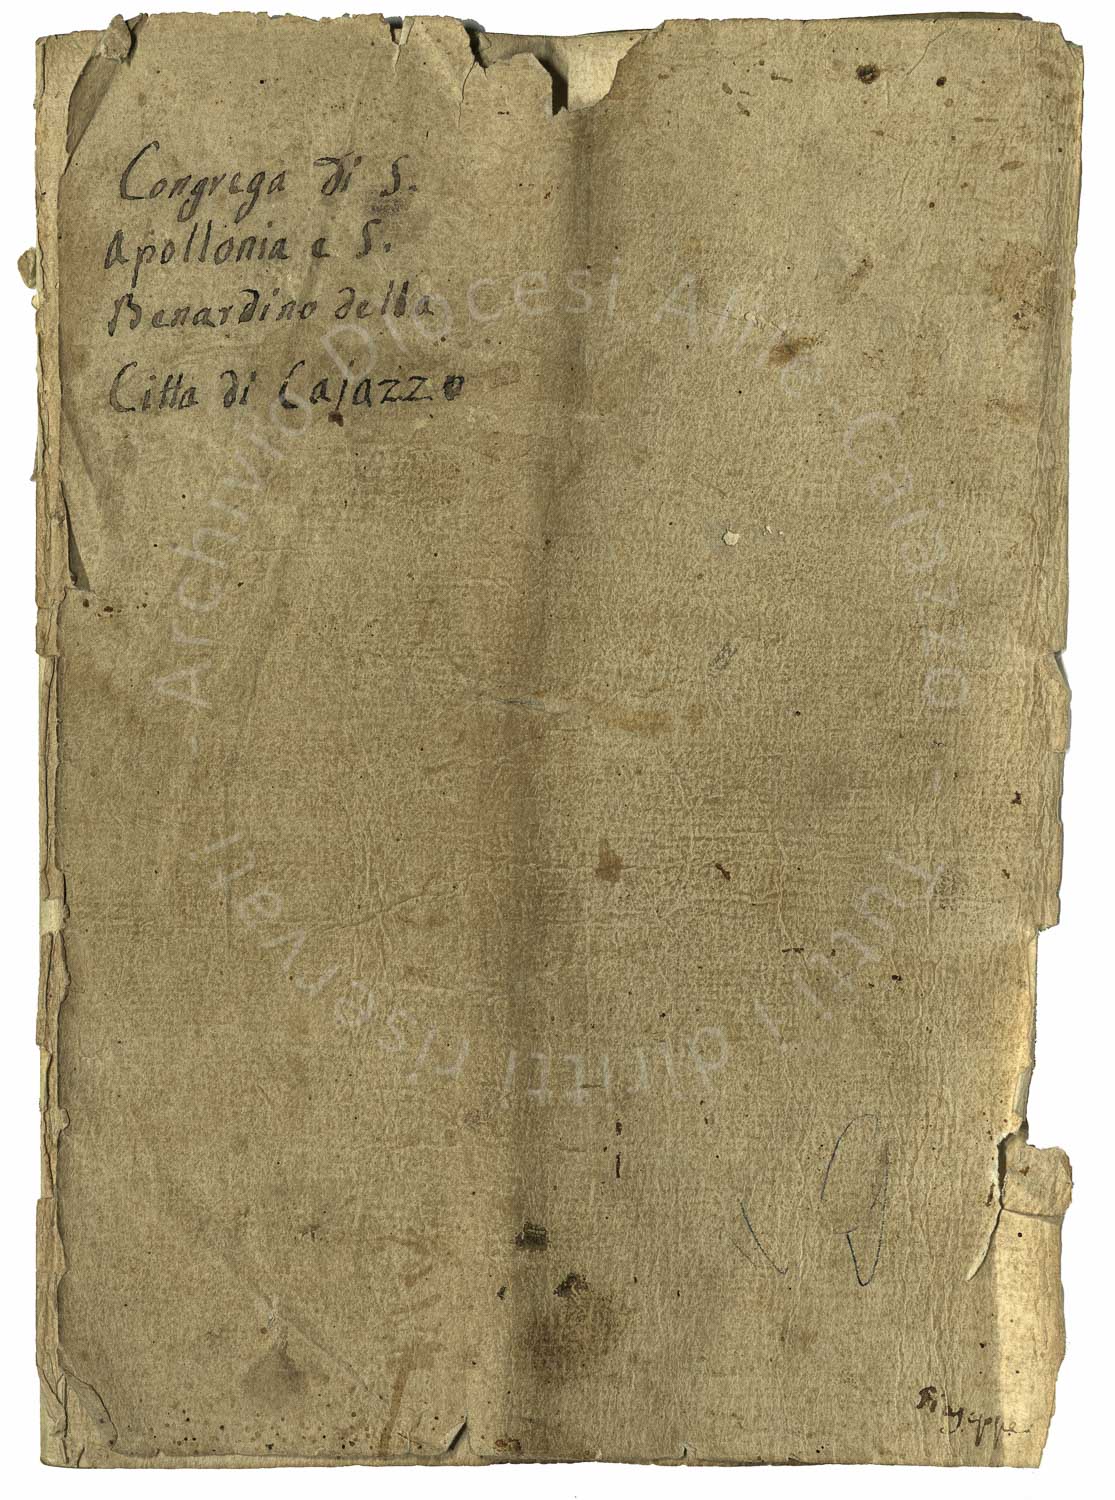 Congrega di S.
Apollonia e S.
Benardino della
Citta di Cajazzo
Giuseppe
- Archivio Diocesi Alife-Caiazzo - Tutti i diritti riservati